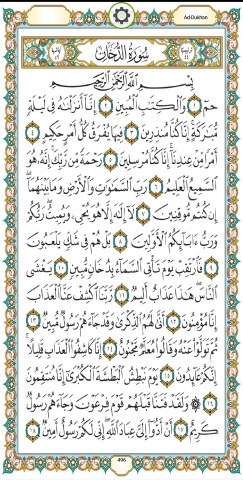 Ad-Dukhan
سُورَةُ الدُّخَانِ
بِسْمِ اللَّهِ الرَّحْمَٰنِ الرَّحِيمِ
حمٓ ١ وَالْكِتَابِ الْمُبِينِ ٢ إِنَّا أَنزَلْنَاهُ فِي لَيْلَةٍ
مُّبَارَكَةٍ إِنَّا كُنَّا مُنذِرِينَ ٣ فِيهَا يُفْرَقُ كُلُّ أَمْرٍ حَكِيمٍ ٤
أَمْرًا مِّنْ عِندِنَا إِنَّا كُنَّا مُرْسِلِينَ ٥ رَحْمَةً مِّن رَّبِّكَ إِنَّهُ هُوَ
السَّمِيعُ الْعَلِيمُ ٦ رَبِّ السَّمَاوَاتِ وَالْأَرْضِ وَمَا بَيْنَهُمَا
إِن كُنتُم مُّوقِنِينَ ٧ لَا إِلَٰهَ إِلَّا هُوَ يُحْيِي وَيُمِيتُ رَبُّكُمْ
وَرَبُّ آبَائِكُمُ الْأَوَّلِينَ ٨ بَلْ هُمْ فِي شَكٍّ يَلْعَبُونَ
٩ فَارْتَقِبْ يَوْمَ تَأْتِي السَّمَاءُ بِدُخَانٍ مُّبِينٍ ١٠ يَغْشَى
النَّاسَ هَٰذَا عَذَابٌ أَلِيمٌ ١١ رَّبَّنَا اكْشِفْ عَنَّا الْعَذَابَ
إِنَّا مُؤْمِنُونَ ١٢ أَنَّىٰ لَهُمُ الذِّكْرَىٰ وَقَدْ جَاءَهُمْ رَسُولٌ مُّبِينٌ ١٣
ثُمَّ تَوَلَّوْا عَنْهُ وَقَالُوا مُعَلَّمٌ مَّجْنُونٌ ١٤ إِنَّا كَاشِفُو الْعَذَابِ قَلِيلًا
إِنَّكُمْ عَائِدُونَ ١٥ يَوْمَ نَبْطِشُ الْبَطْشَةَ الْكُبْرَىٰ إِنَّا مُنتَقِمُونَ
١٦ وَلَقَدْ فَتَنَّا قَبْلَهُمْ قَوْمَ فِرْعَوْنَ وَجَاءَهُمْ رَسُولٌ
كَرِيمٌ ١٧ أَنْ أَدُّوا إِلَيَّ عِبَادَ اللَّهِ إِنِّي لَكُمْ رَسُولٌ أَمِينٌ ١٨
496